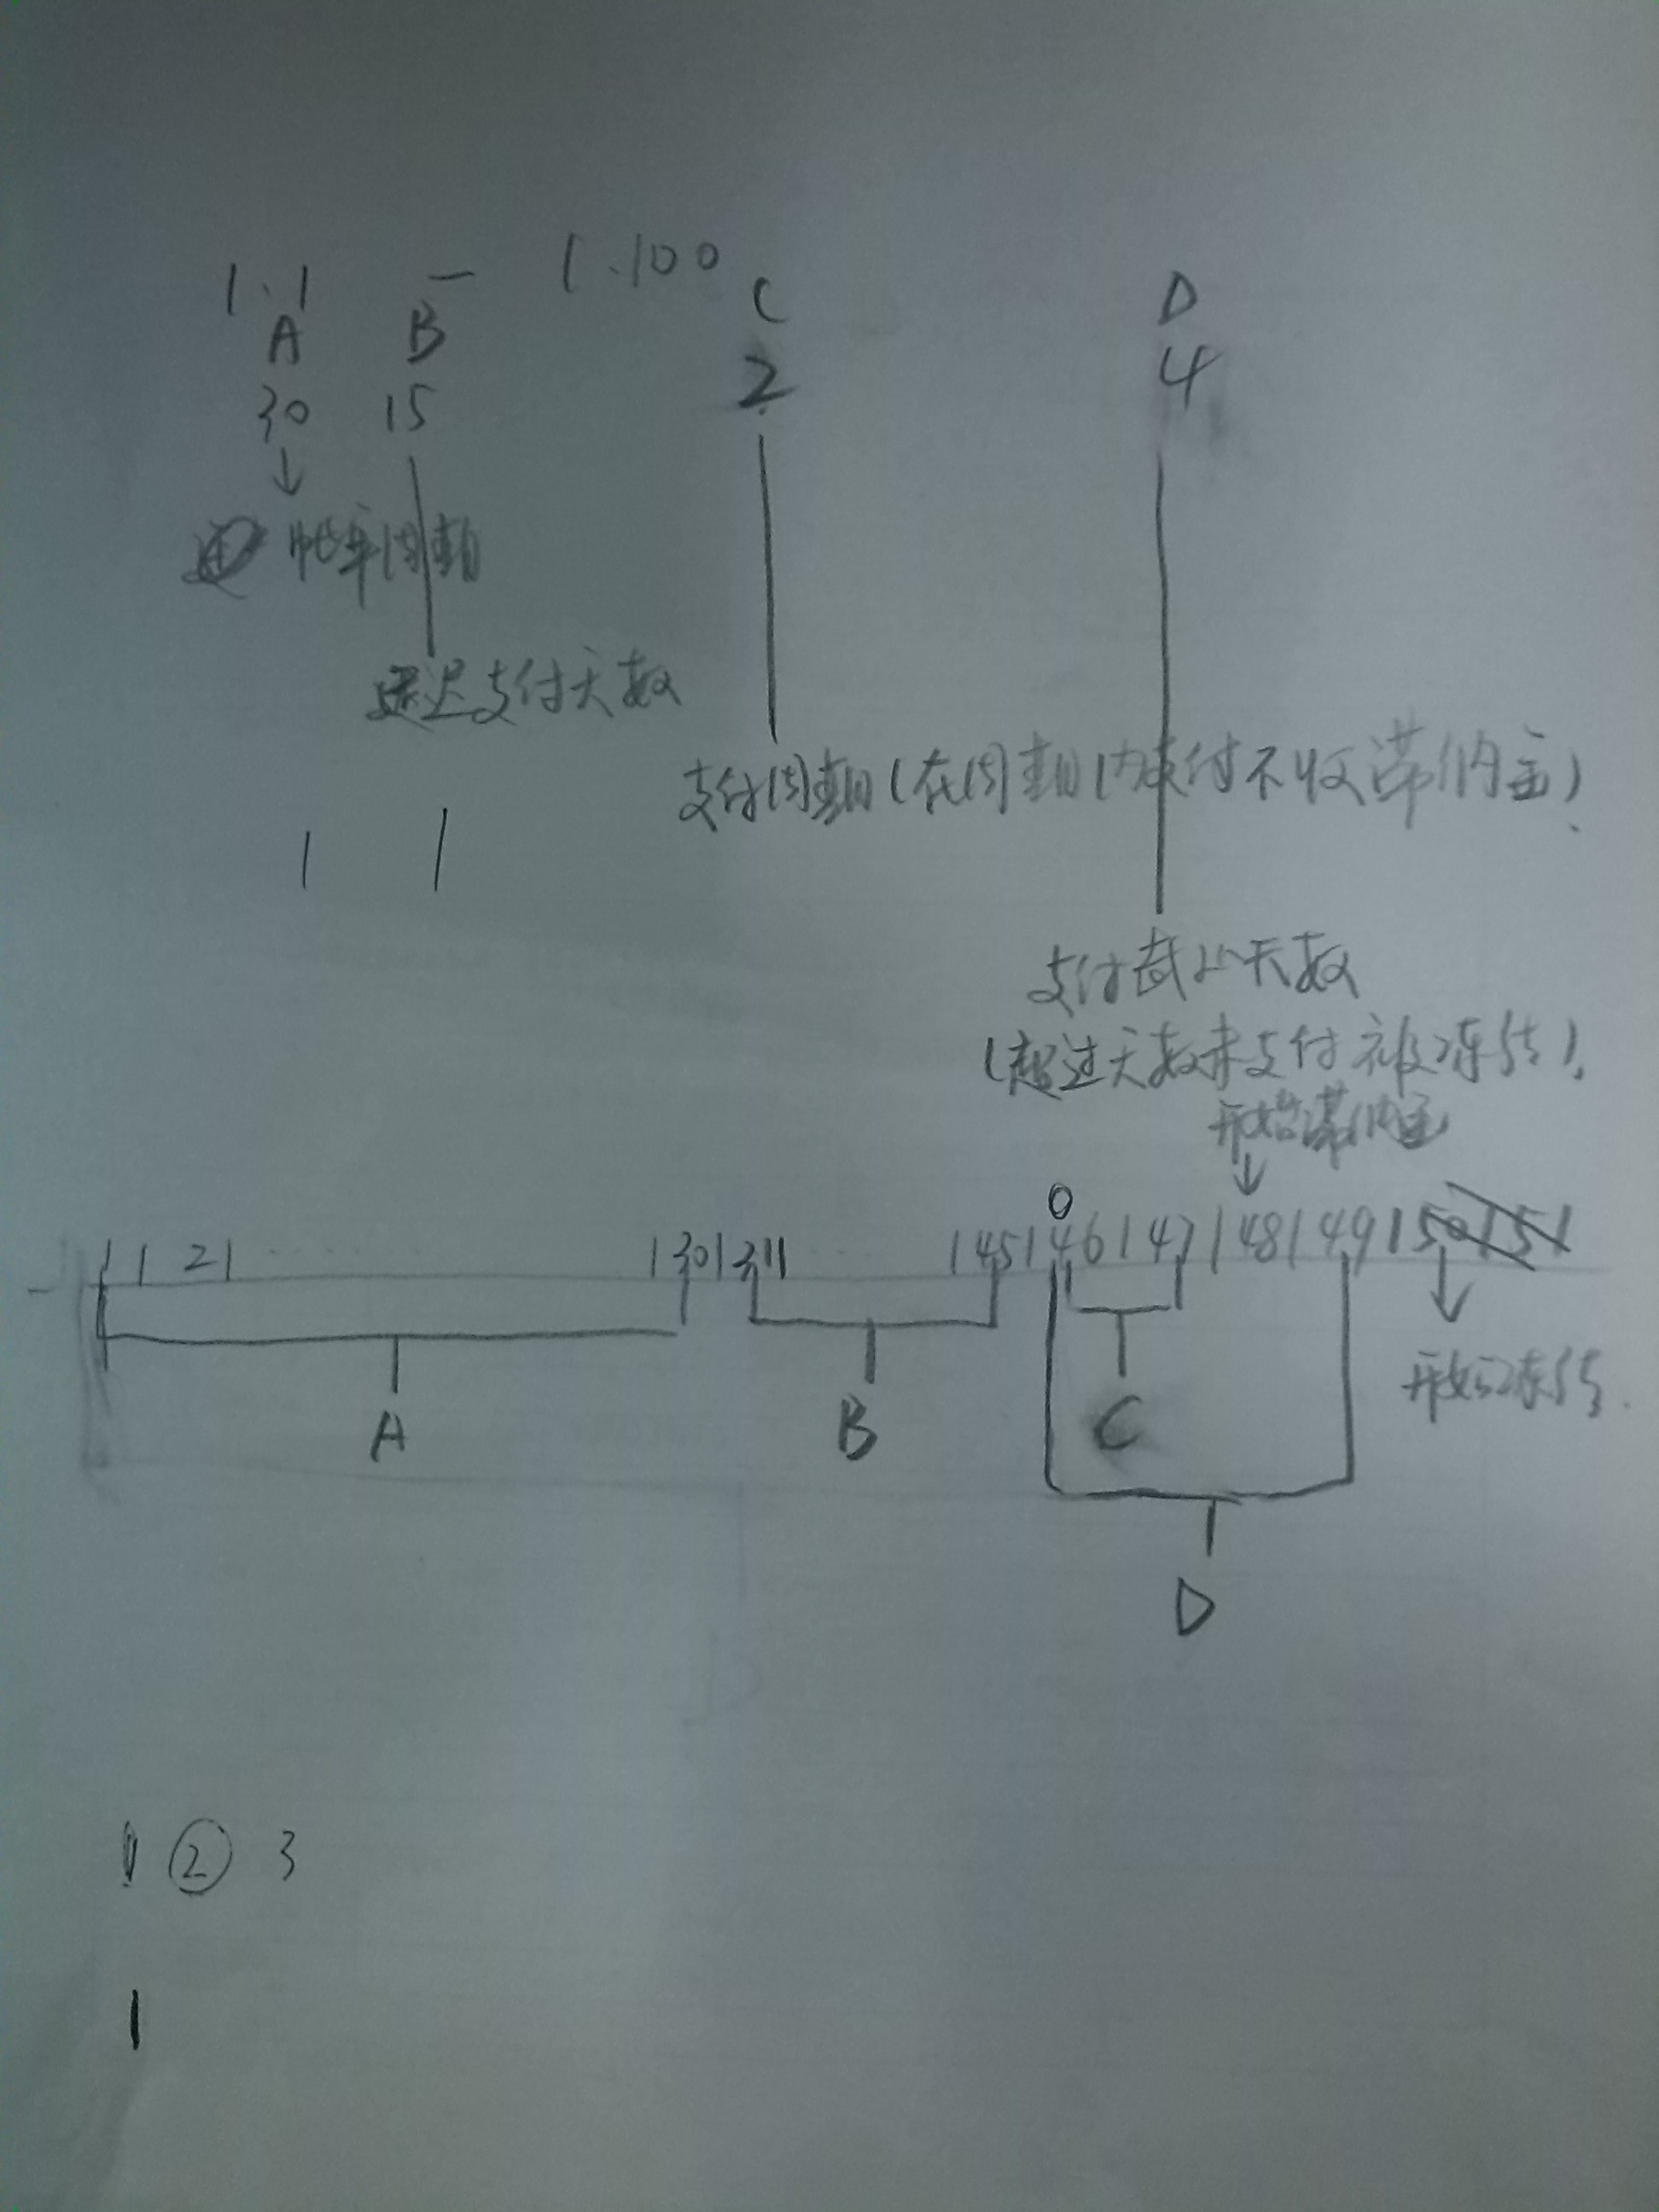 1.1 — 1.100
A B C D
30 15 2 4
帐单周期
延迟支付天数
支付周期(在周期内支付不收滞纳金)
支付截止天数
(超过天数未支付被冻结)
开始滞纳金
0
1 | 2 | ... | 30 | 31 | ... | 45 | 46 | 47 | 48 | 49 | 50 | 51
开始冻结
A B C
D
1 ② 3
1